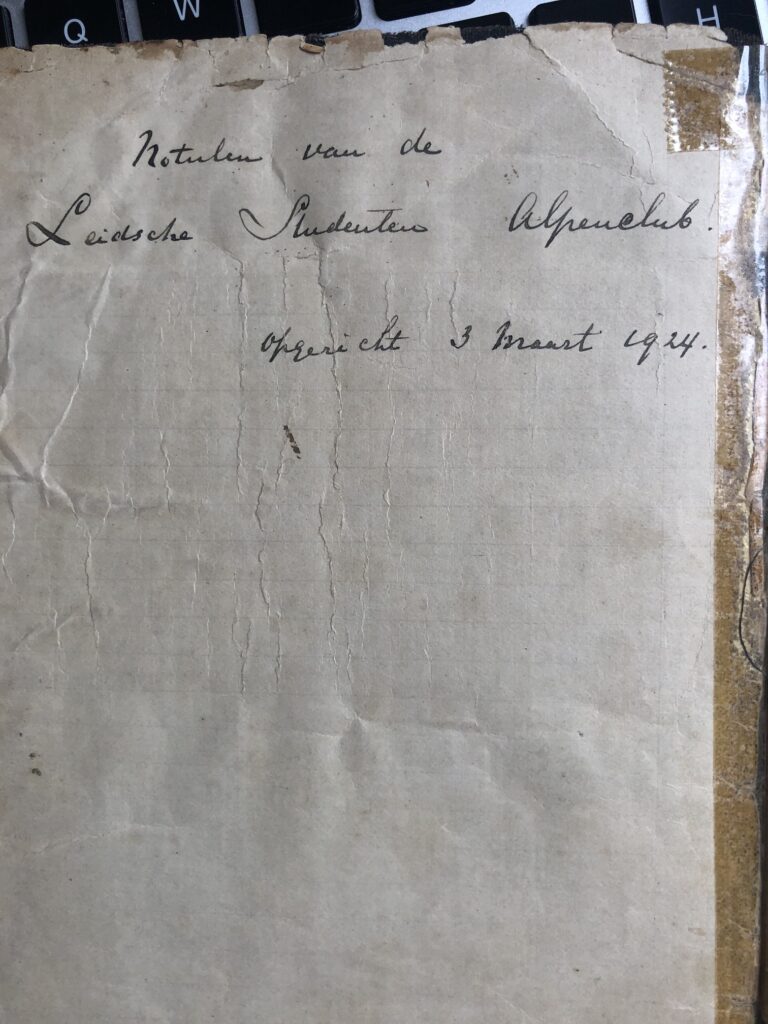 Q W H
Notulen van de
Leidsche Studenten Alpenclub.
opgericht 3 Maart 1924.